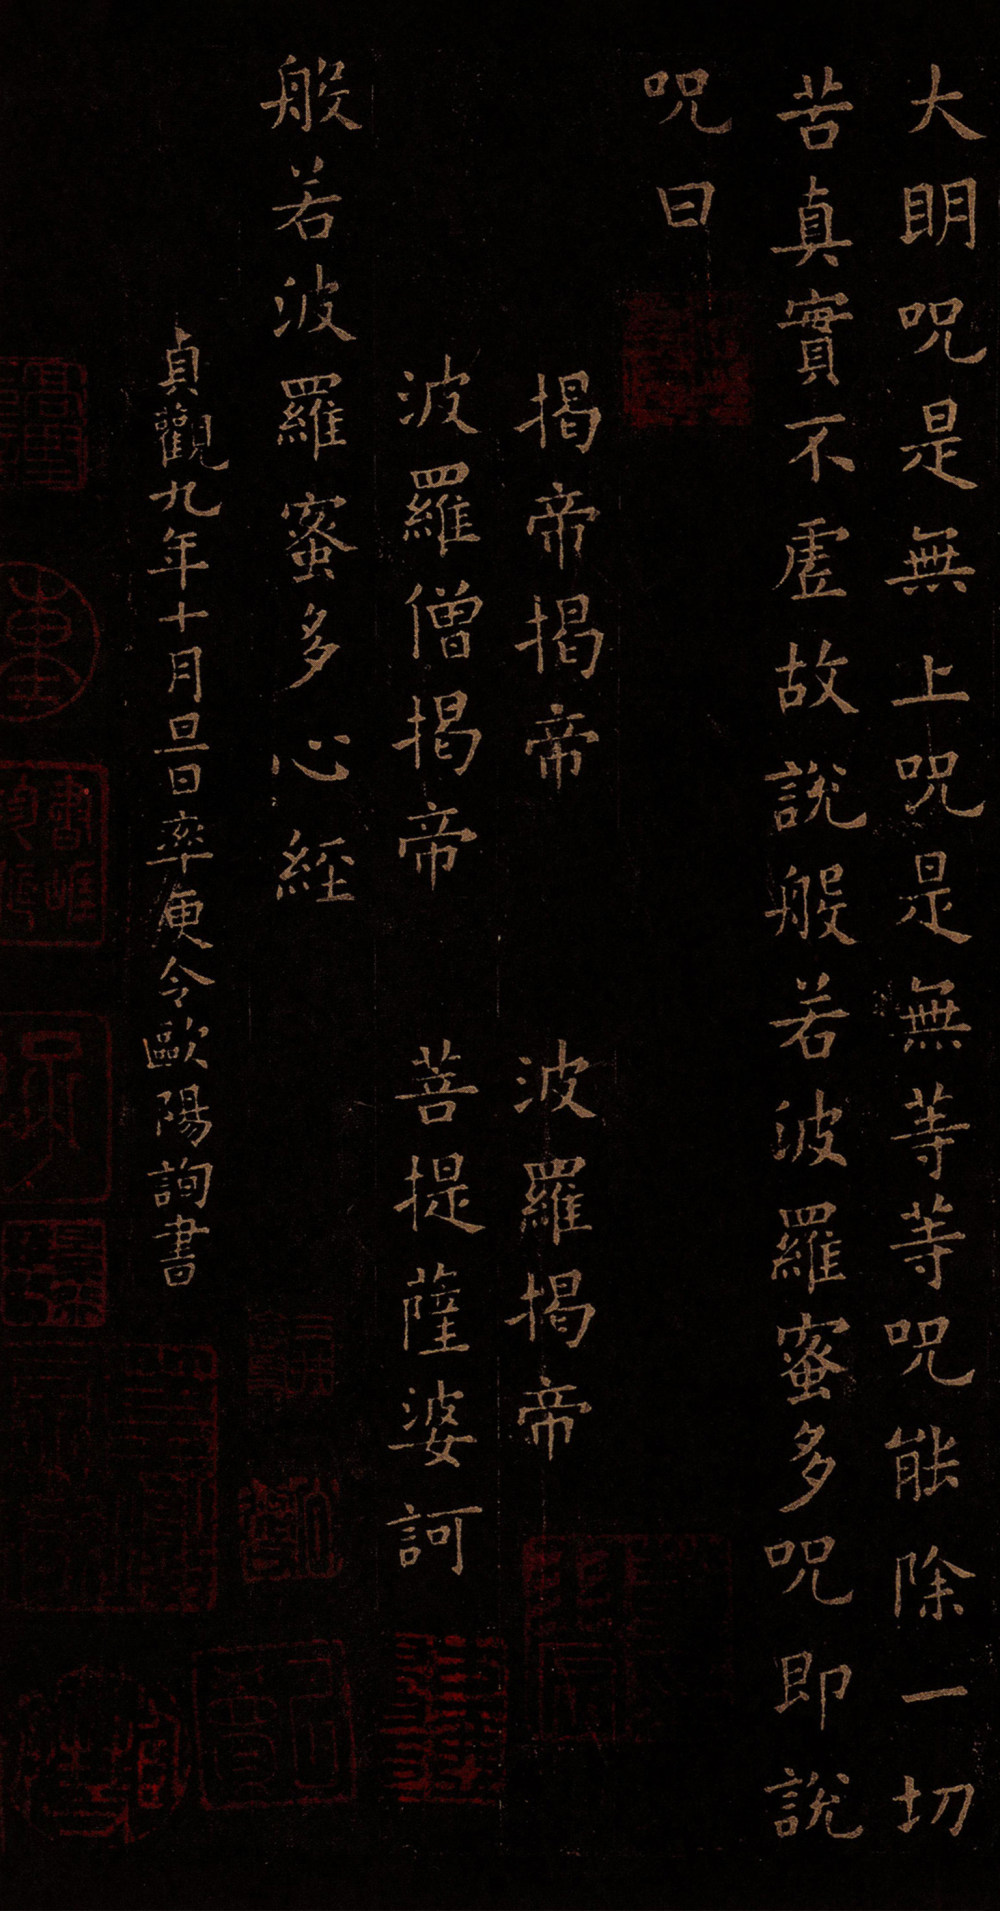 大明呪是無上呪是無等等呪能除一切
苦真實不虛故說般若波羅蜜多呪即說
呪曰
揭帝揭帝 波羅揭帝
波羅僧揭帝 菩提薩婆訶
般若波羅蜜多心經
貞觀九年十月旦日率更令歐陽詢書